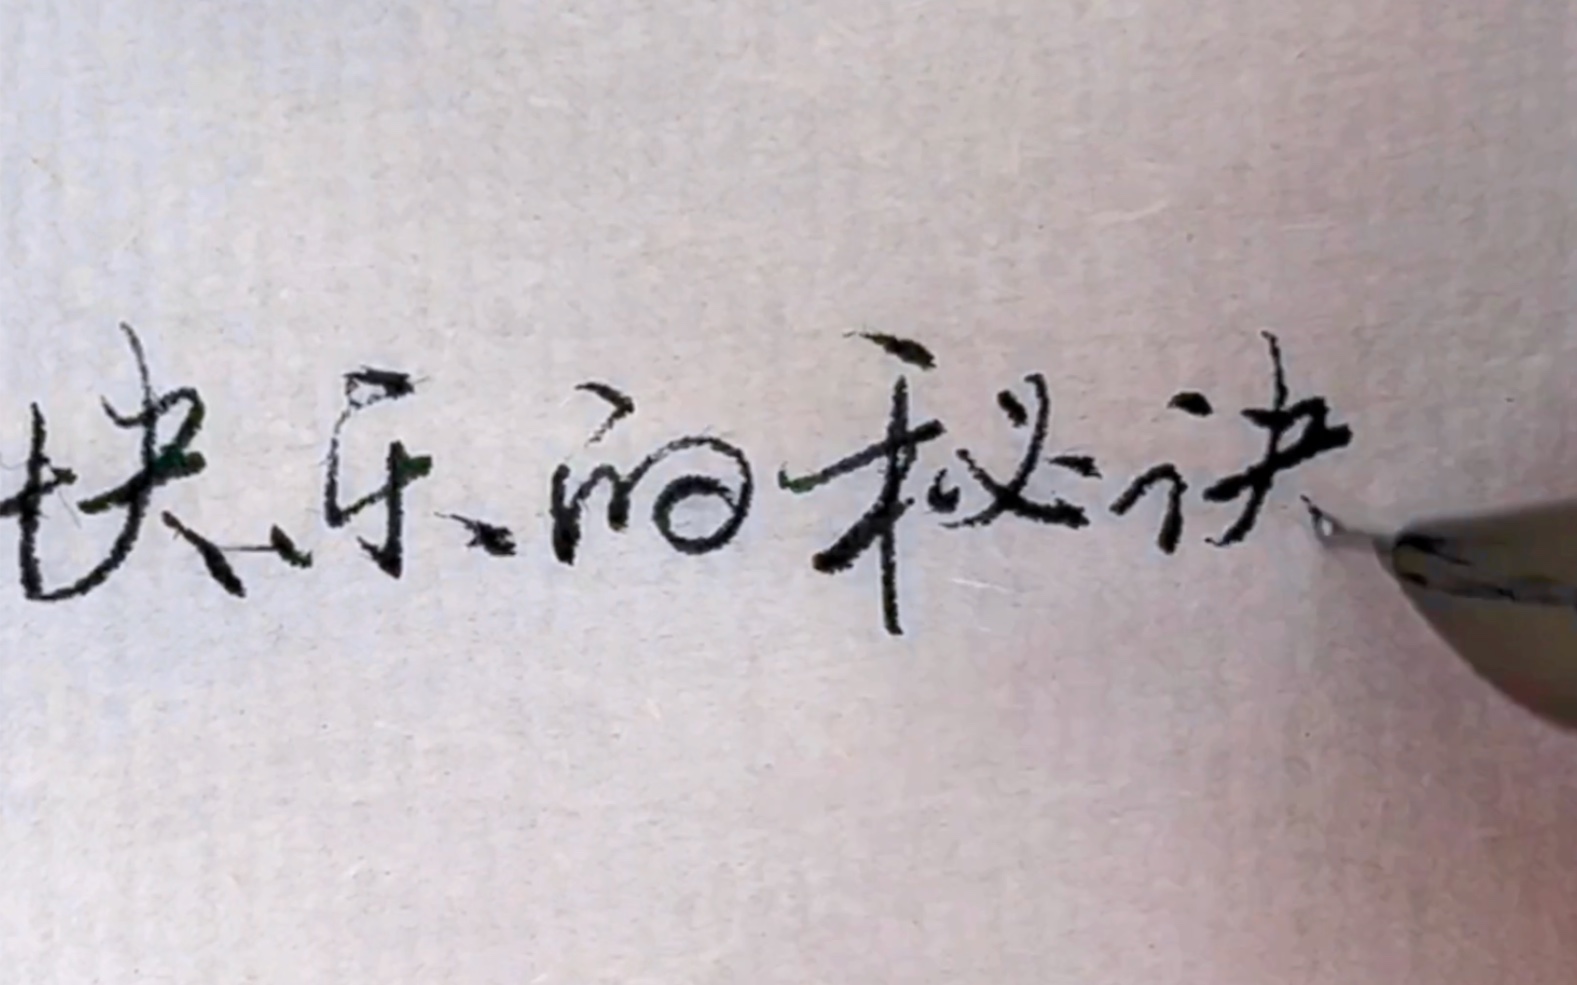 快乐的秘诀